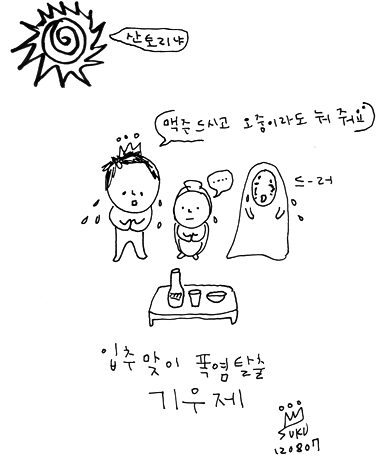 산토리냐
맥주 드시고 오줌이라도 눠 줘요
....
드-러
입추 맞이 폭염탈출
기우제
SUKU
120807